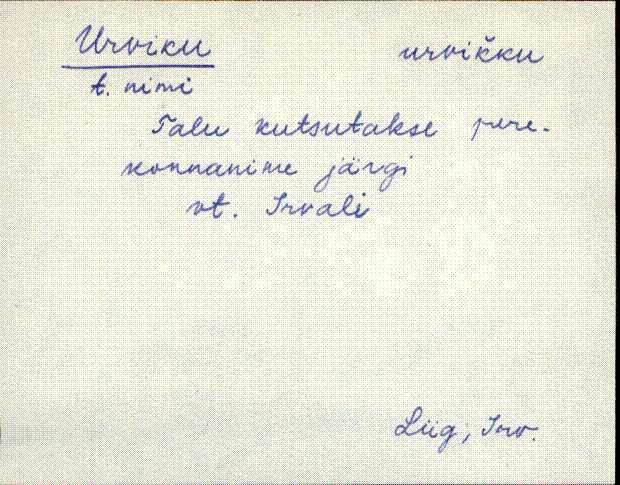 Urviku urvikku
t. nimi
Talu kutsutakse pere-
konnanime järgi
vt. Irvali
Liig, Irv.